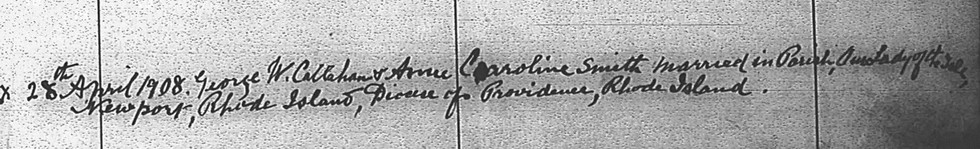 x 28th April 1908. George W. Callahan & Annie Caroline Smith married in Parish, Our Lady of the Isle,
Newport, Rhode Island, Diocese of Providence, Rhode Island.